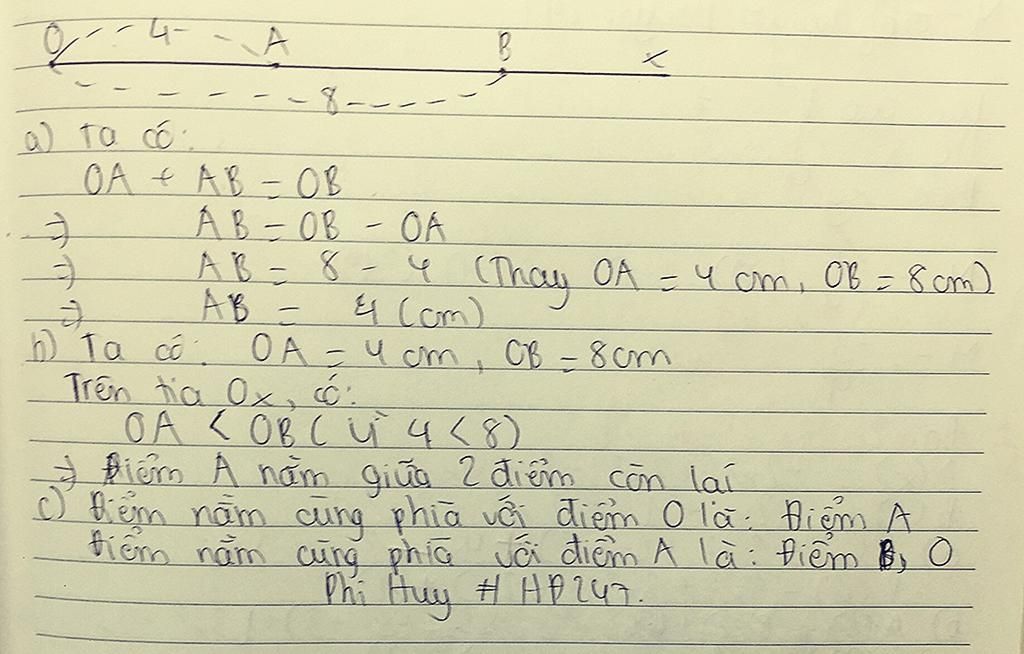 O 4 A B x
8
a) Ta có:
OA + AB = OB
=) AB = OB - OA
=) AB = 8 - 4 (Thay OA = 4 cm, OB = 8cm)
=) AB = 4 (cm)
b) Ta có: OA = 4cm, OB = 8cm
Trên tia Ox, có:
OA < OB (vì 4 < 8)
=) Điểm A nằm giữa 2 điểm còn lại
c) Điểm nằm cùng phía với điểm O là: Điểm A
Điểm nằm cùng phía với điểm A là: Điểm B, O
Phi Huy # HD247.